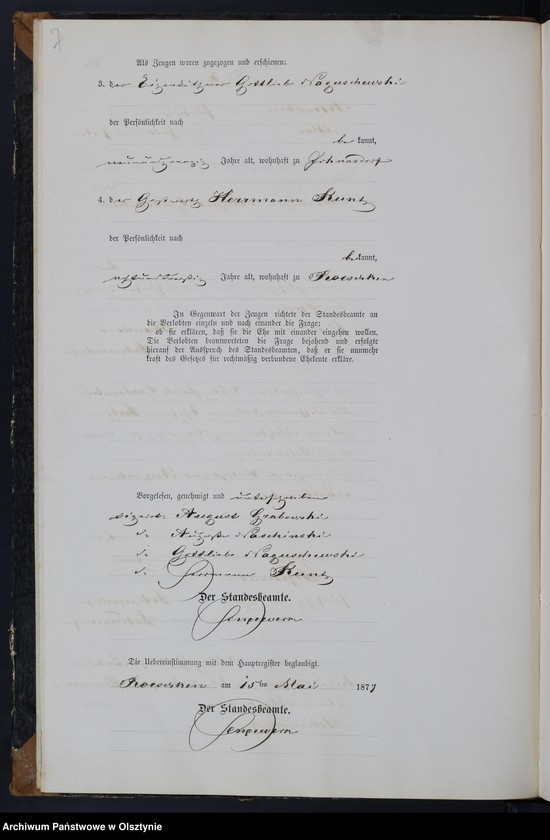 7
Als Zeugen waren zugezogen und erschienen:
3. der Eigenkäthner Gottlieb Naguschewski
der Persönlichkeit nach
be kannt,
neunundzwanzig Jahre alt, wohnhaft zu
4. der Gastwirth Herrmann Kuntz
der Persönlichkeit nach
be kannt,
achtunddreißig Jahre alt, wohnhaft zu
In Gegenwart der Zeugen richtete der Standesbeamte an
die Verlobten einzeln und nach einander die Frage:
ob sie erklären, daß sie die Ehe mit einander eingehen wollen.
Die Verlobten beantworteten die Frage bejahend und erfolgte
hierauf der Ausspruch des Standesbeamten, daß er sie nunmehr
kraft des Gesetzes für rechtmäßig verbundene Eheleute erkläre.
Vorgelesen, genehmigt und unterschrieben
August Grabowski
d. Auguste Naschinski
d. Gottlieb Naguschewski
d. Herrmann Kuntz
Der Standesbeamte.
Die Uebereinstimmung mit dem Hauptregister beglaubigt.
am 15ten Mai 1877
Der Standesbeamte.
Archiwum Państwowe w Olsztynie